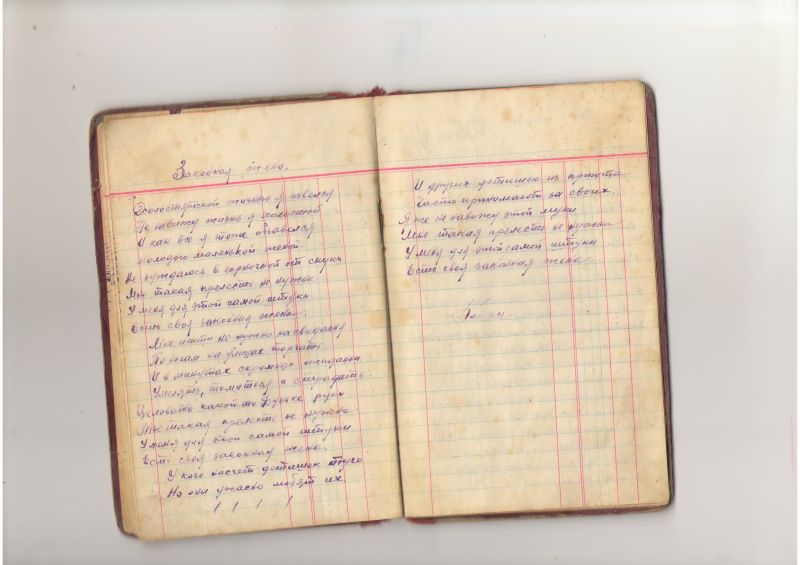 Законная жена.
Холостяцкой жизнью я
Не навижу жизнь я холостой
И как все я тоже обзавелся
молодой маленькой женой
Не нуждаюсь в горничной от скуки
Мне такая прелесть не нужна
У меня для этой самой штуки
Есть своя законная жена.
Мне идти не нужно на свиданья
По ночам на улицах торчать
И в минутах скромных ожиданья
Умолять, томиться и страдать.
Целовать какой то руки
Мне такая прелесть не нужна
У меня для этой самой штуки
Есть своя законная жена.
У кого насчет детишек туго
Но они ужасно любят их
И других детишек из приюта
часто принимают за своих.
Я же не навижу этой муки
Мне такая прелесть не нужна
У меня для этой самой штуки
Есть своя законная жена.
Конец.